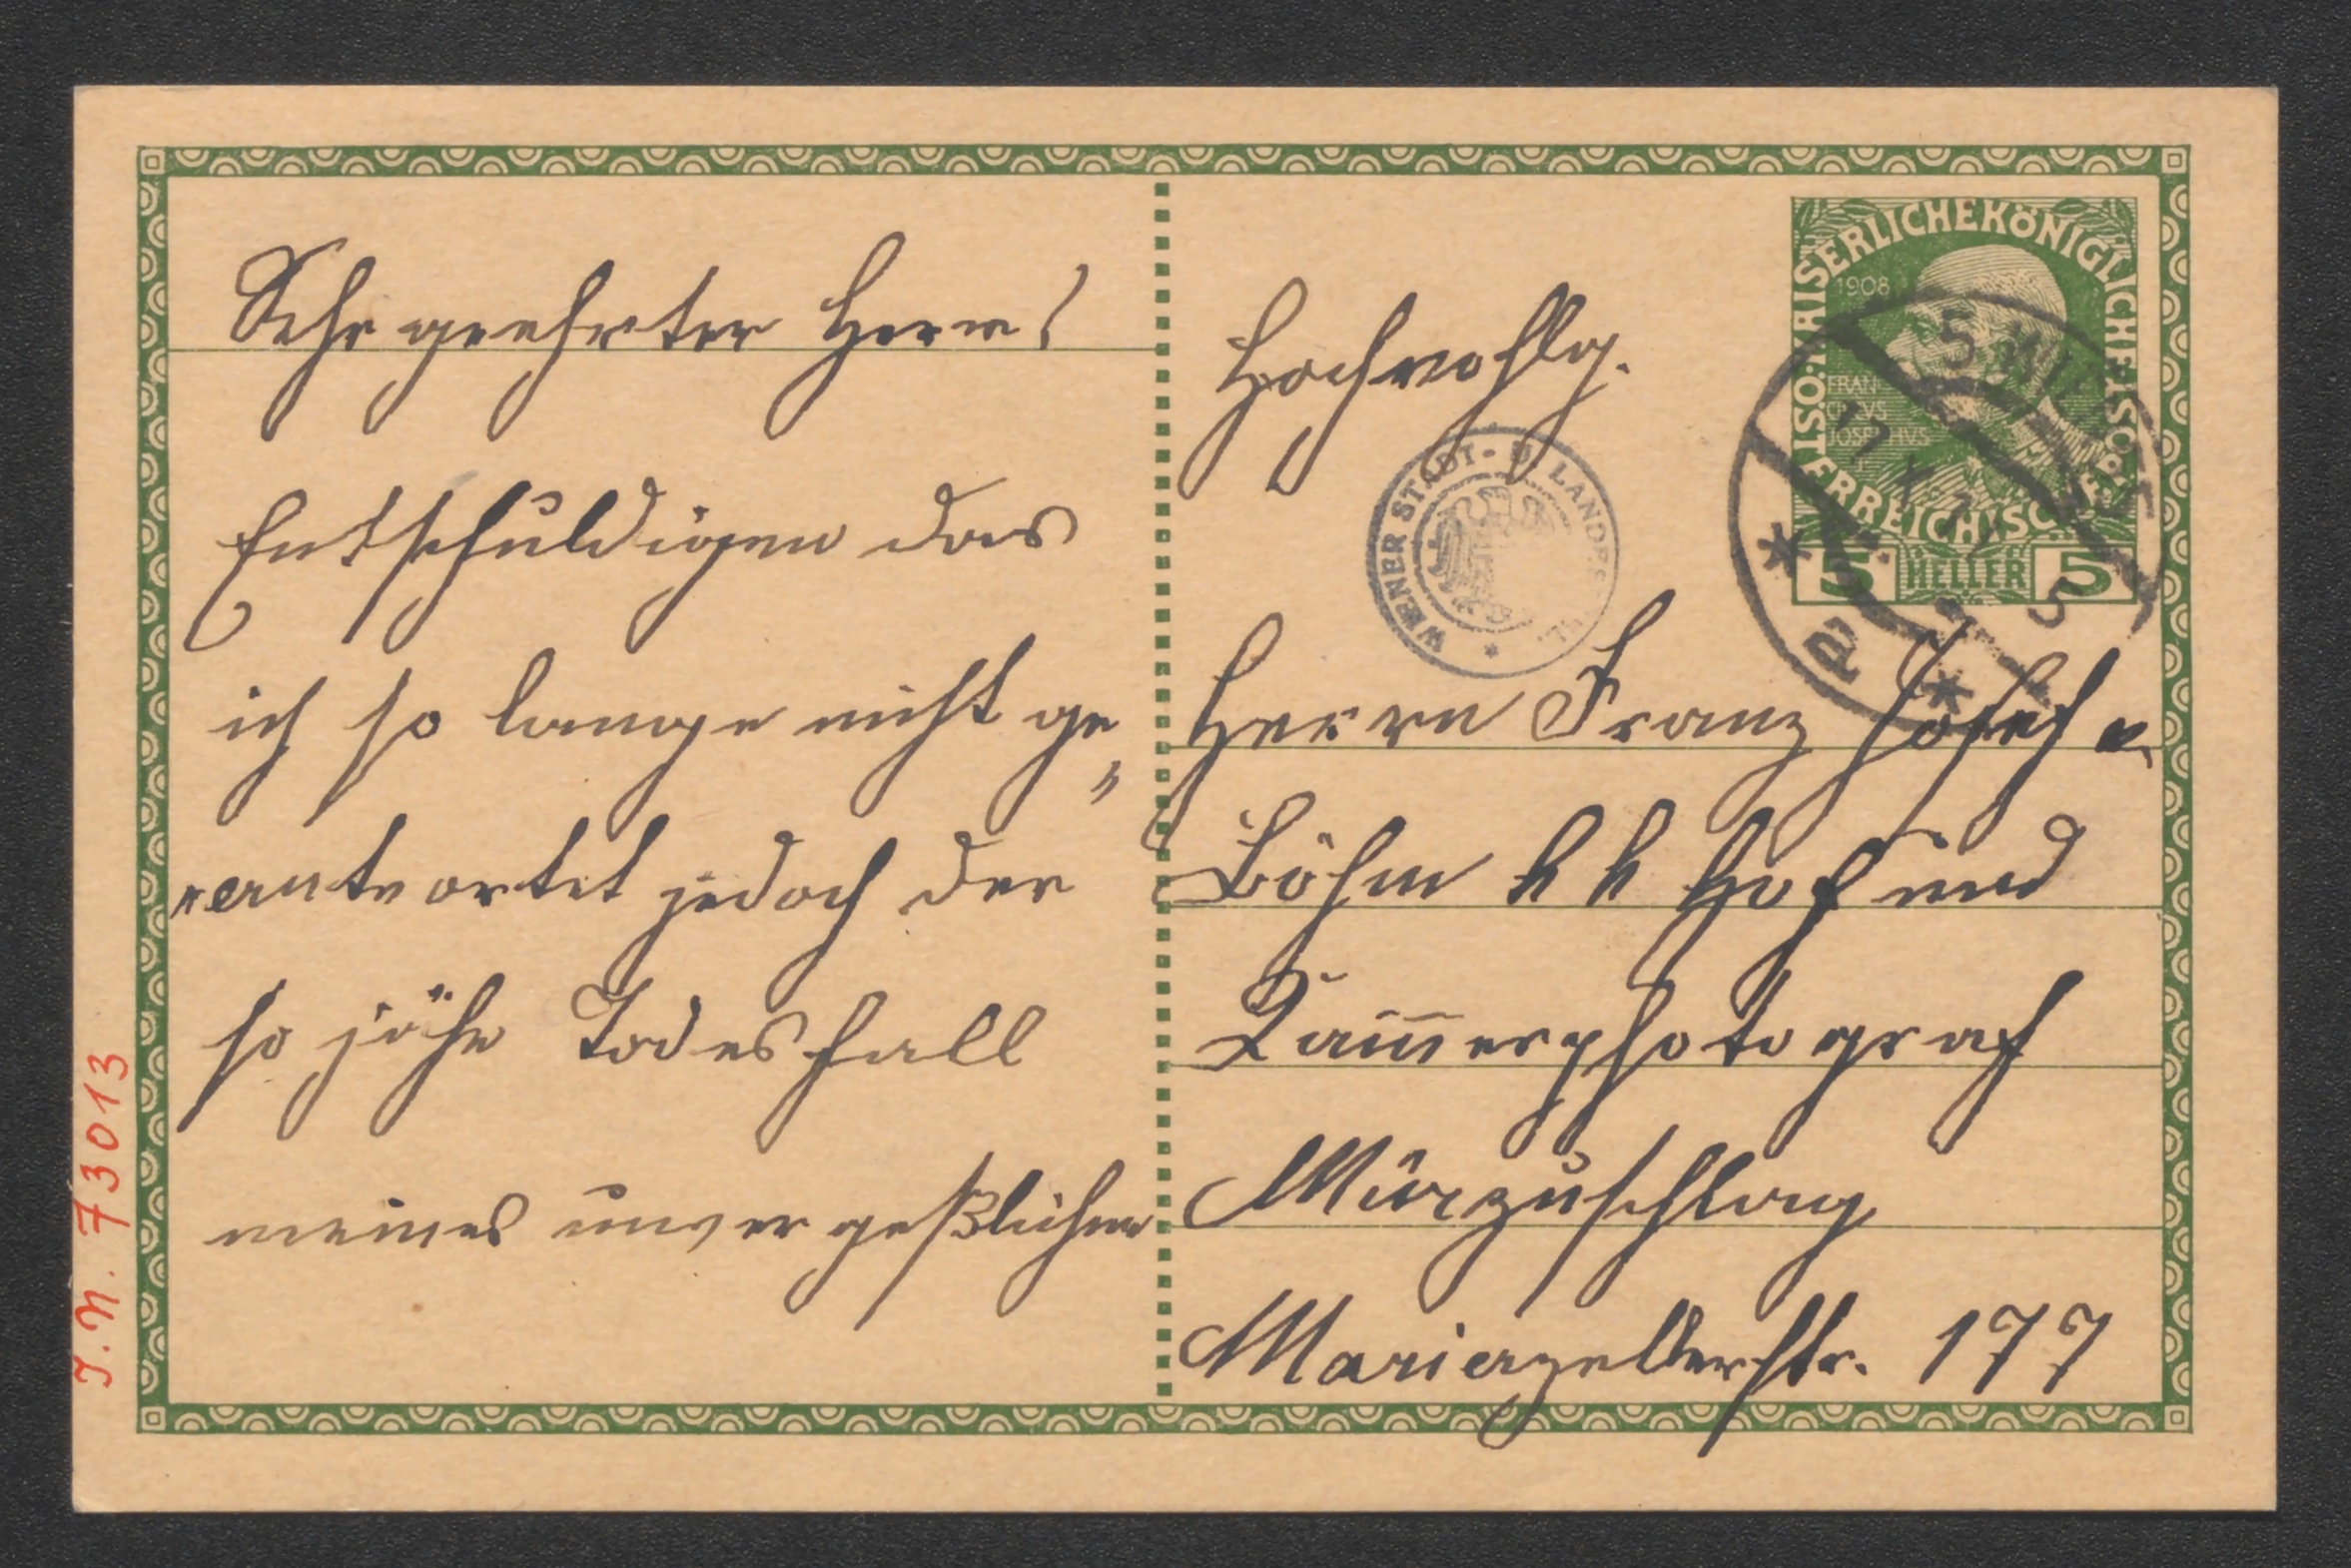 Sehr geehrter Herr!
Entschuldigen das
ich so lange nicht ge„
antwortet jedoch der
so jähe Todesfall
meines unvergeßlichen
Hochwohlg.
Herrn Franz Josef v.
Böhm k k Hof und
Kam̅erphotograf
Mürzzuschlag
Mariazellerstr. 177
KAISERLICHE KÖNIGLICHE
ÖSTERREICHISCHE
1908
FRAN
CISCVS
JOSEPHVS
5 HELLER 5
5 WIEN
17 X
5
WIENER STADT- U. LANDES
I.N. 73013